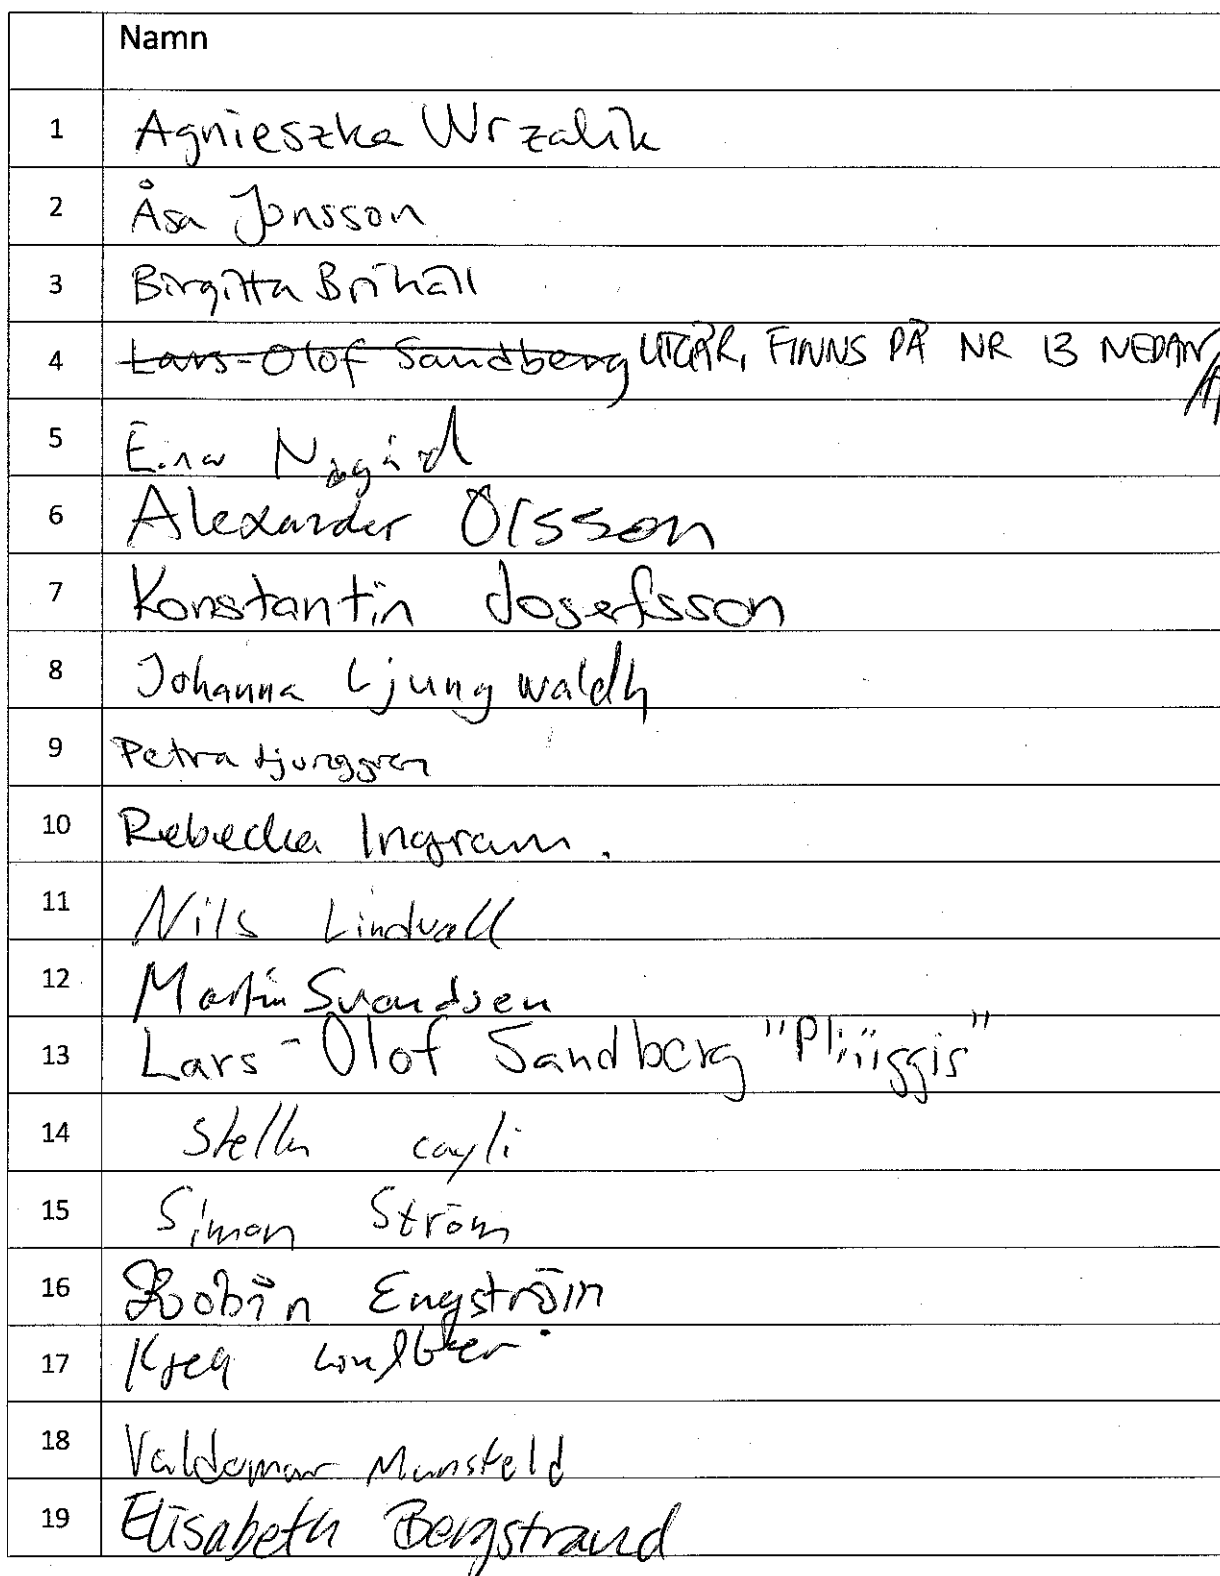 Namn
1 Agnieszka Wrzalik
2 Åsa Jonsson
3 Birgitta
4 Lars-Olof Sandberg UTGÅR, FINNS PÅ NR 13 NEDAN
5
6 Alexander Olsson
7 Konstantin Josefsson
8 Johanna Ljungwaldh
9 Petra Ljunggren
10 Rebecka Ingram.
11 Nils Lindvall
12 Martin Svendsen
13 Lars-Olof Sandberg "Pliiiggis"
14 Stella cayli
15 Simon Ström
16 Robin Engström
17
18 Valdemar
19 Elisabeth Bergstrand